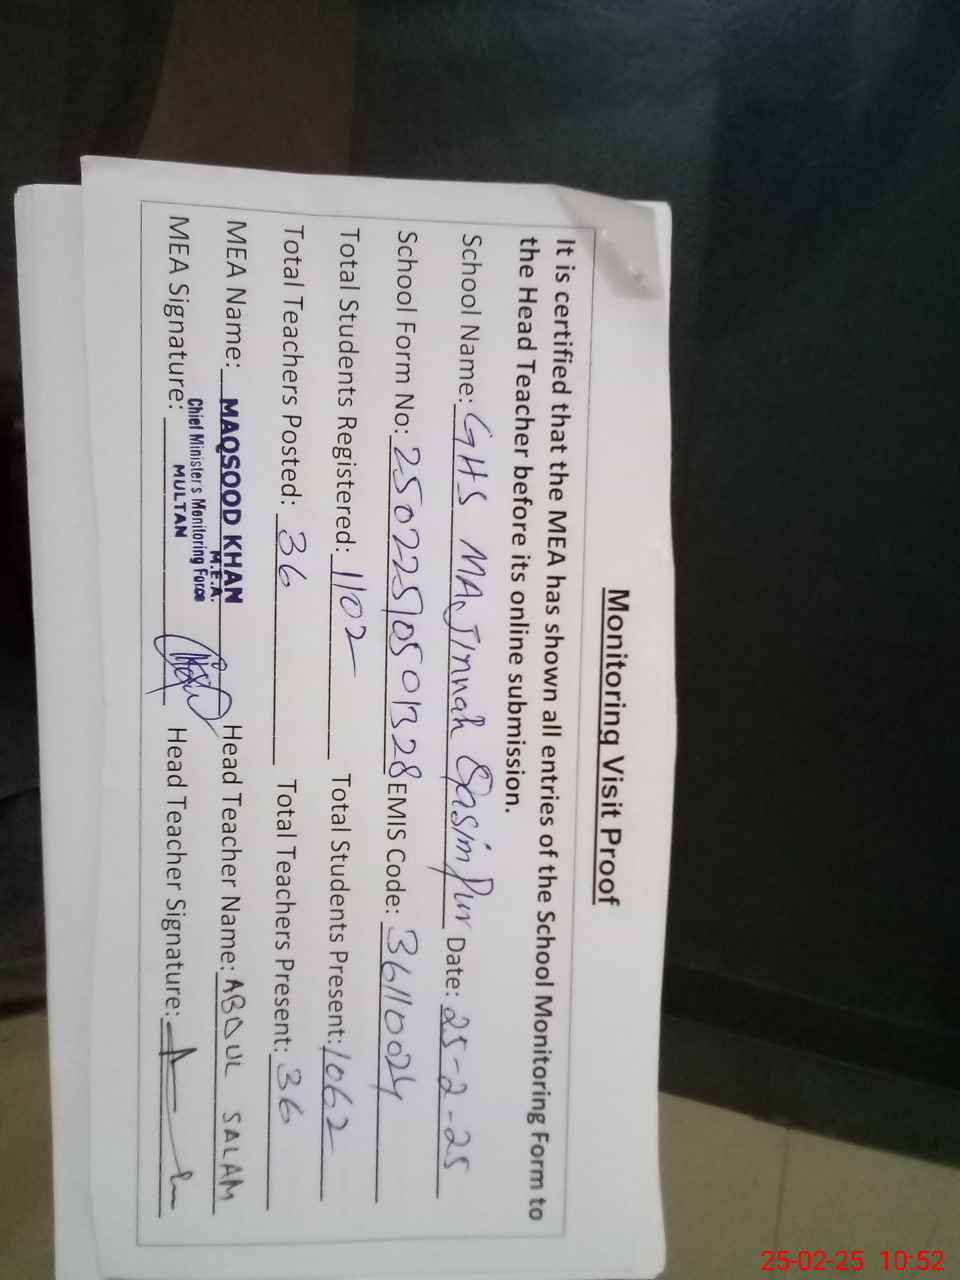 Monitoring Visit Proof
It is certified that the MEA has shown all entries of the School Monitoring Form to
the Head Teacher before its online submission.
School Name: GHS MA Jinnah Qasim Pur Date: 25-2-25
School Form No: 25022510501328 EMIS Code: 36110024
Total Students Registered: 1102 Total Students Present: 1062
Total Teachers Posted: 36 Total Teachers Present: 36
MEA Name: MAQSOOD KHAN Head Teacher Name: ABDUL SALAM
M.E.A.
Chief Minister's Monitoring Force
MULTAN
MEA Signature: Head Teacher Signature:
25-02-25 10:52